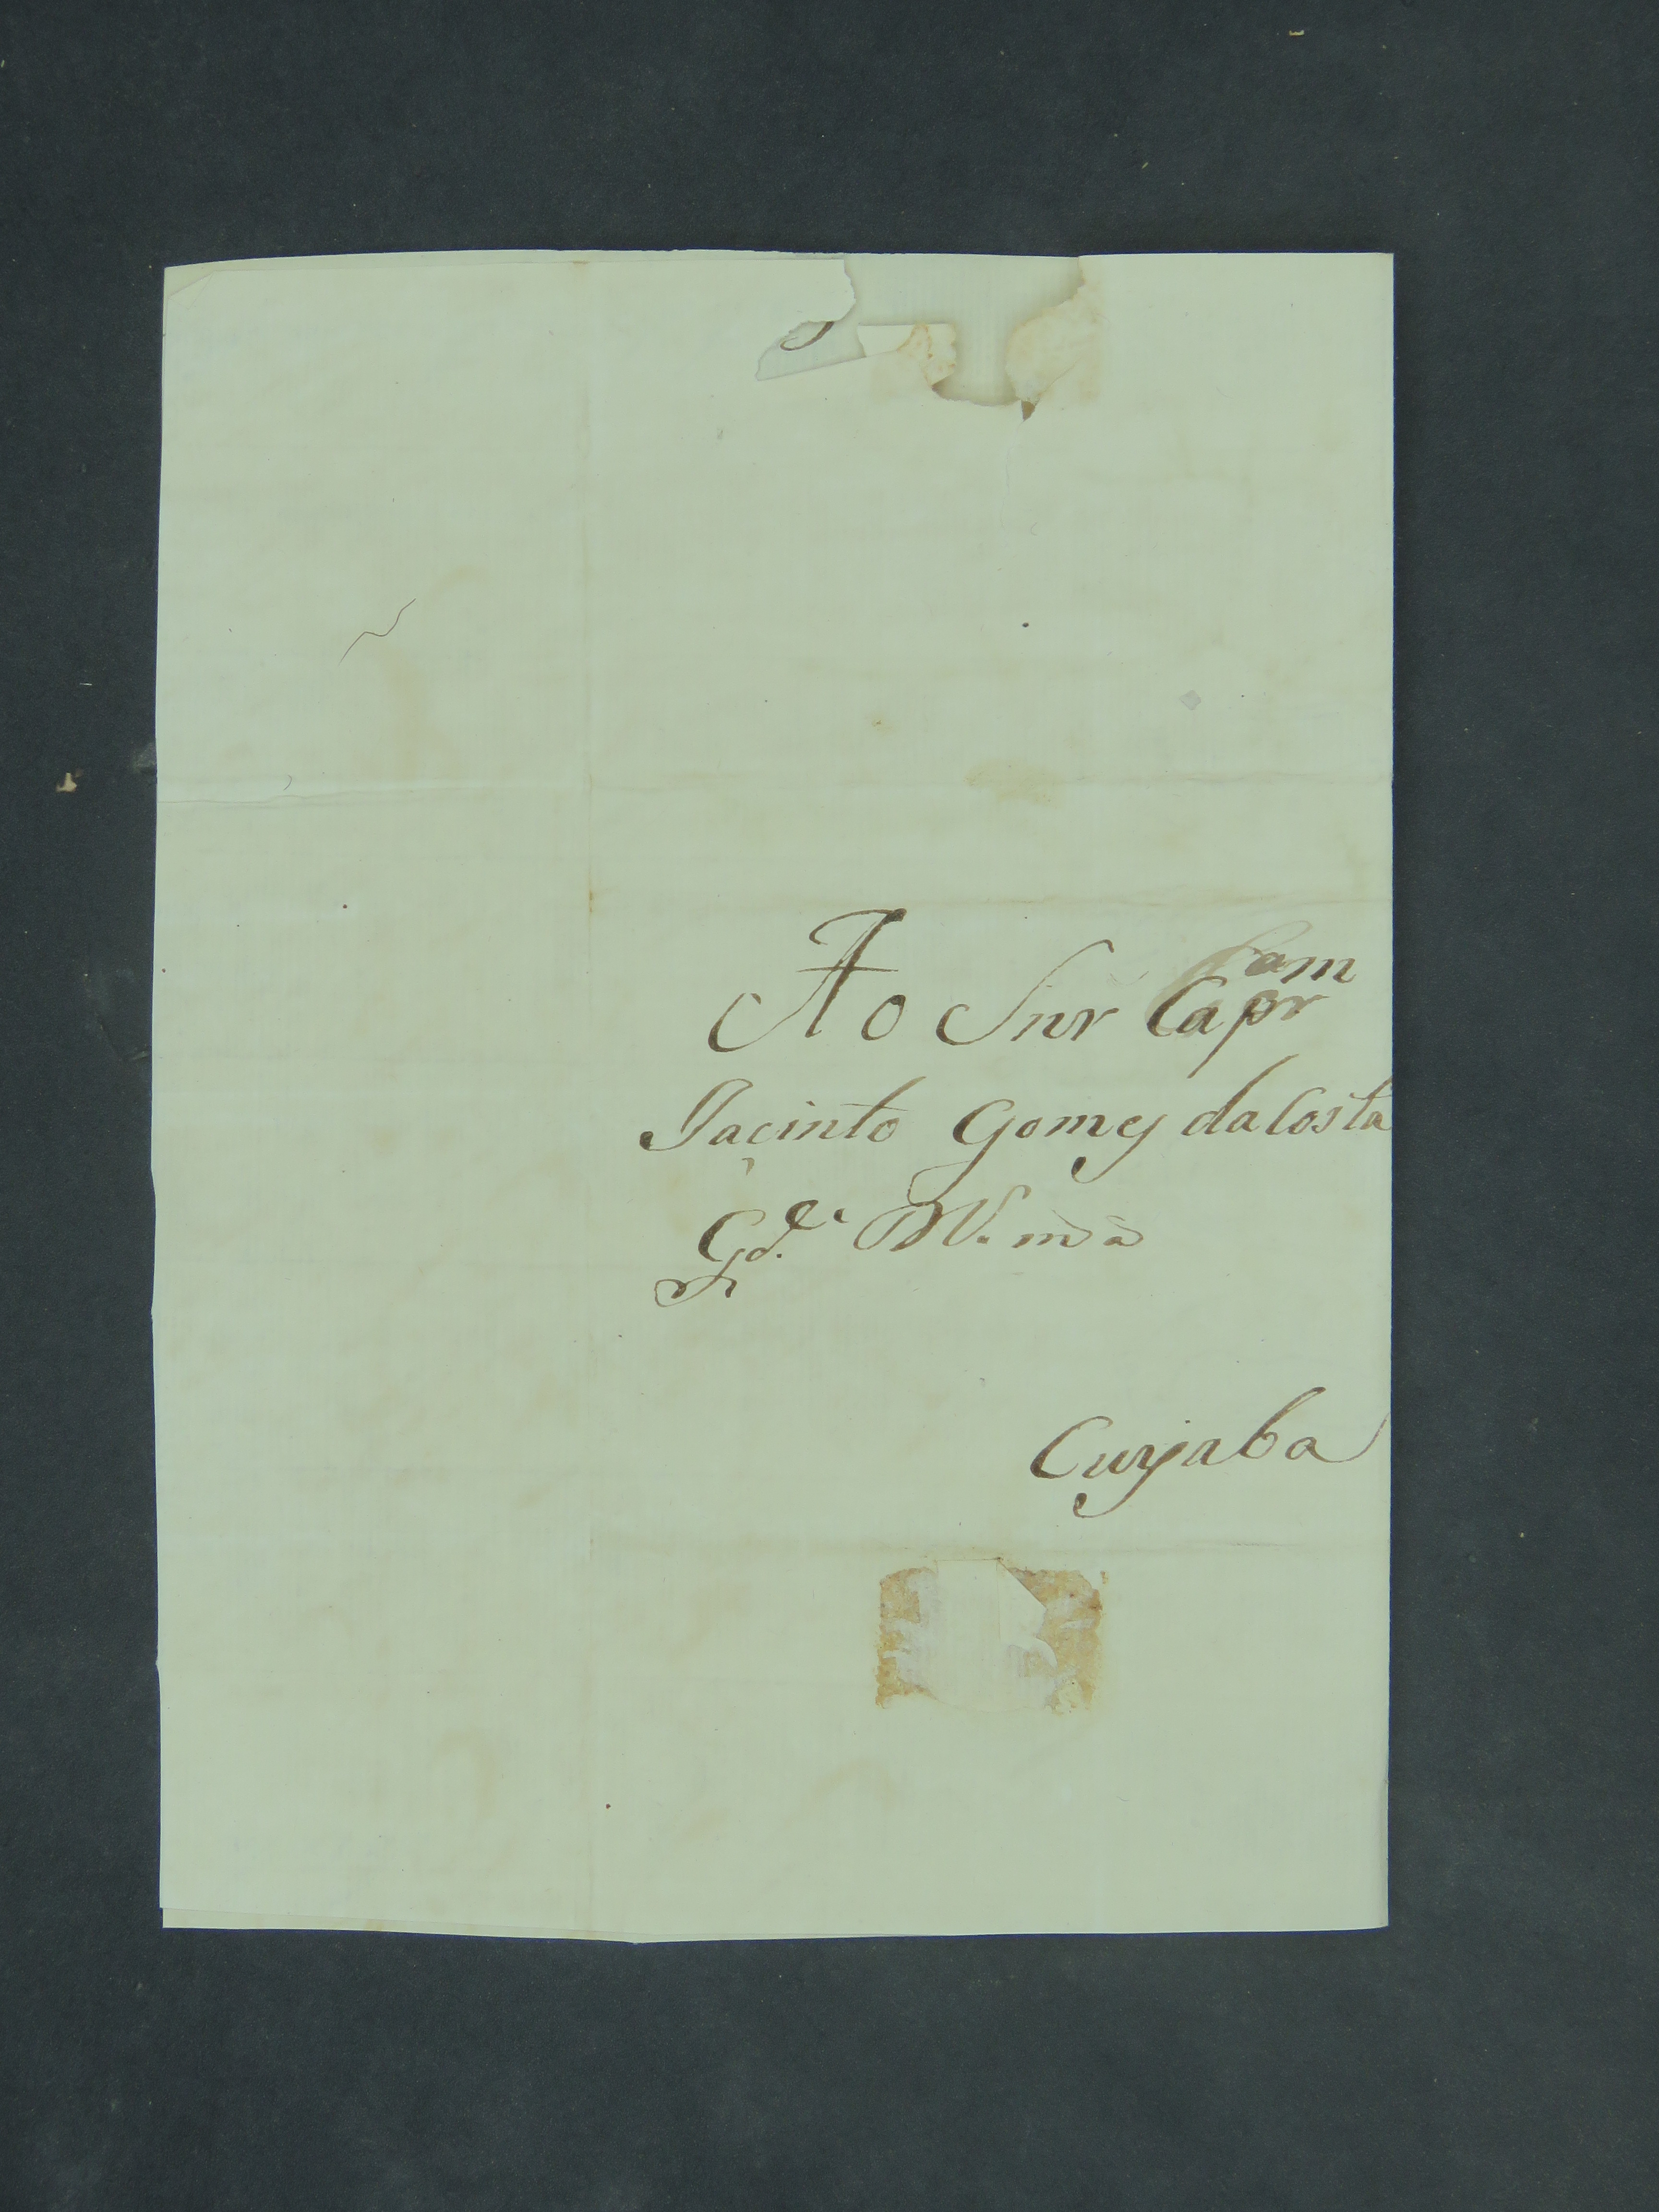 Ao Snr Capam
Jacinto Gomes da Costa
Gde. M. ma
Cuyaba